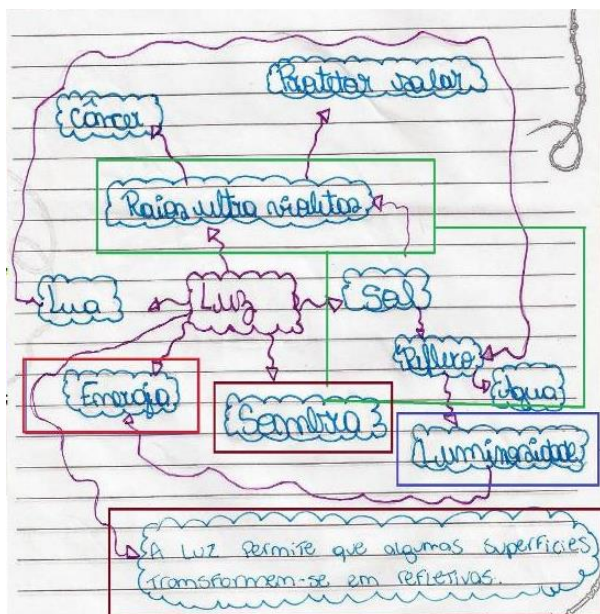 Protetor solar
Câncer
Raios ultra violetas
Lua
Luz
Sol
Reflexo
Energia
Água
Sombra
Luminosidade
A LUZ PERMITE QUE algumas superfícies
transformem-se em refletivas.